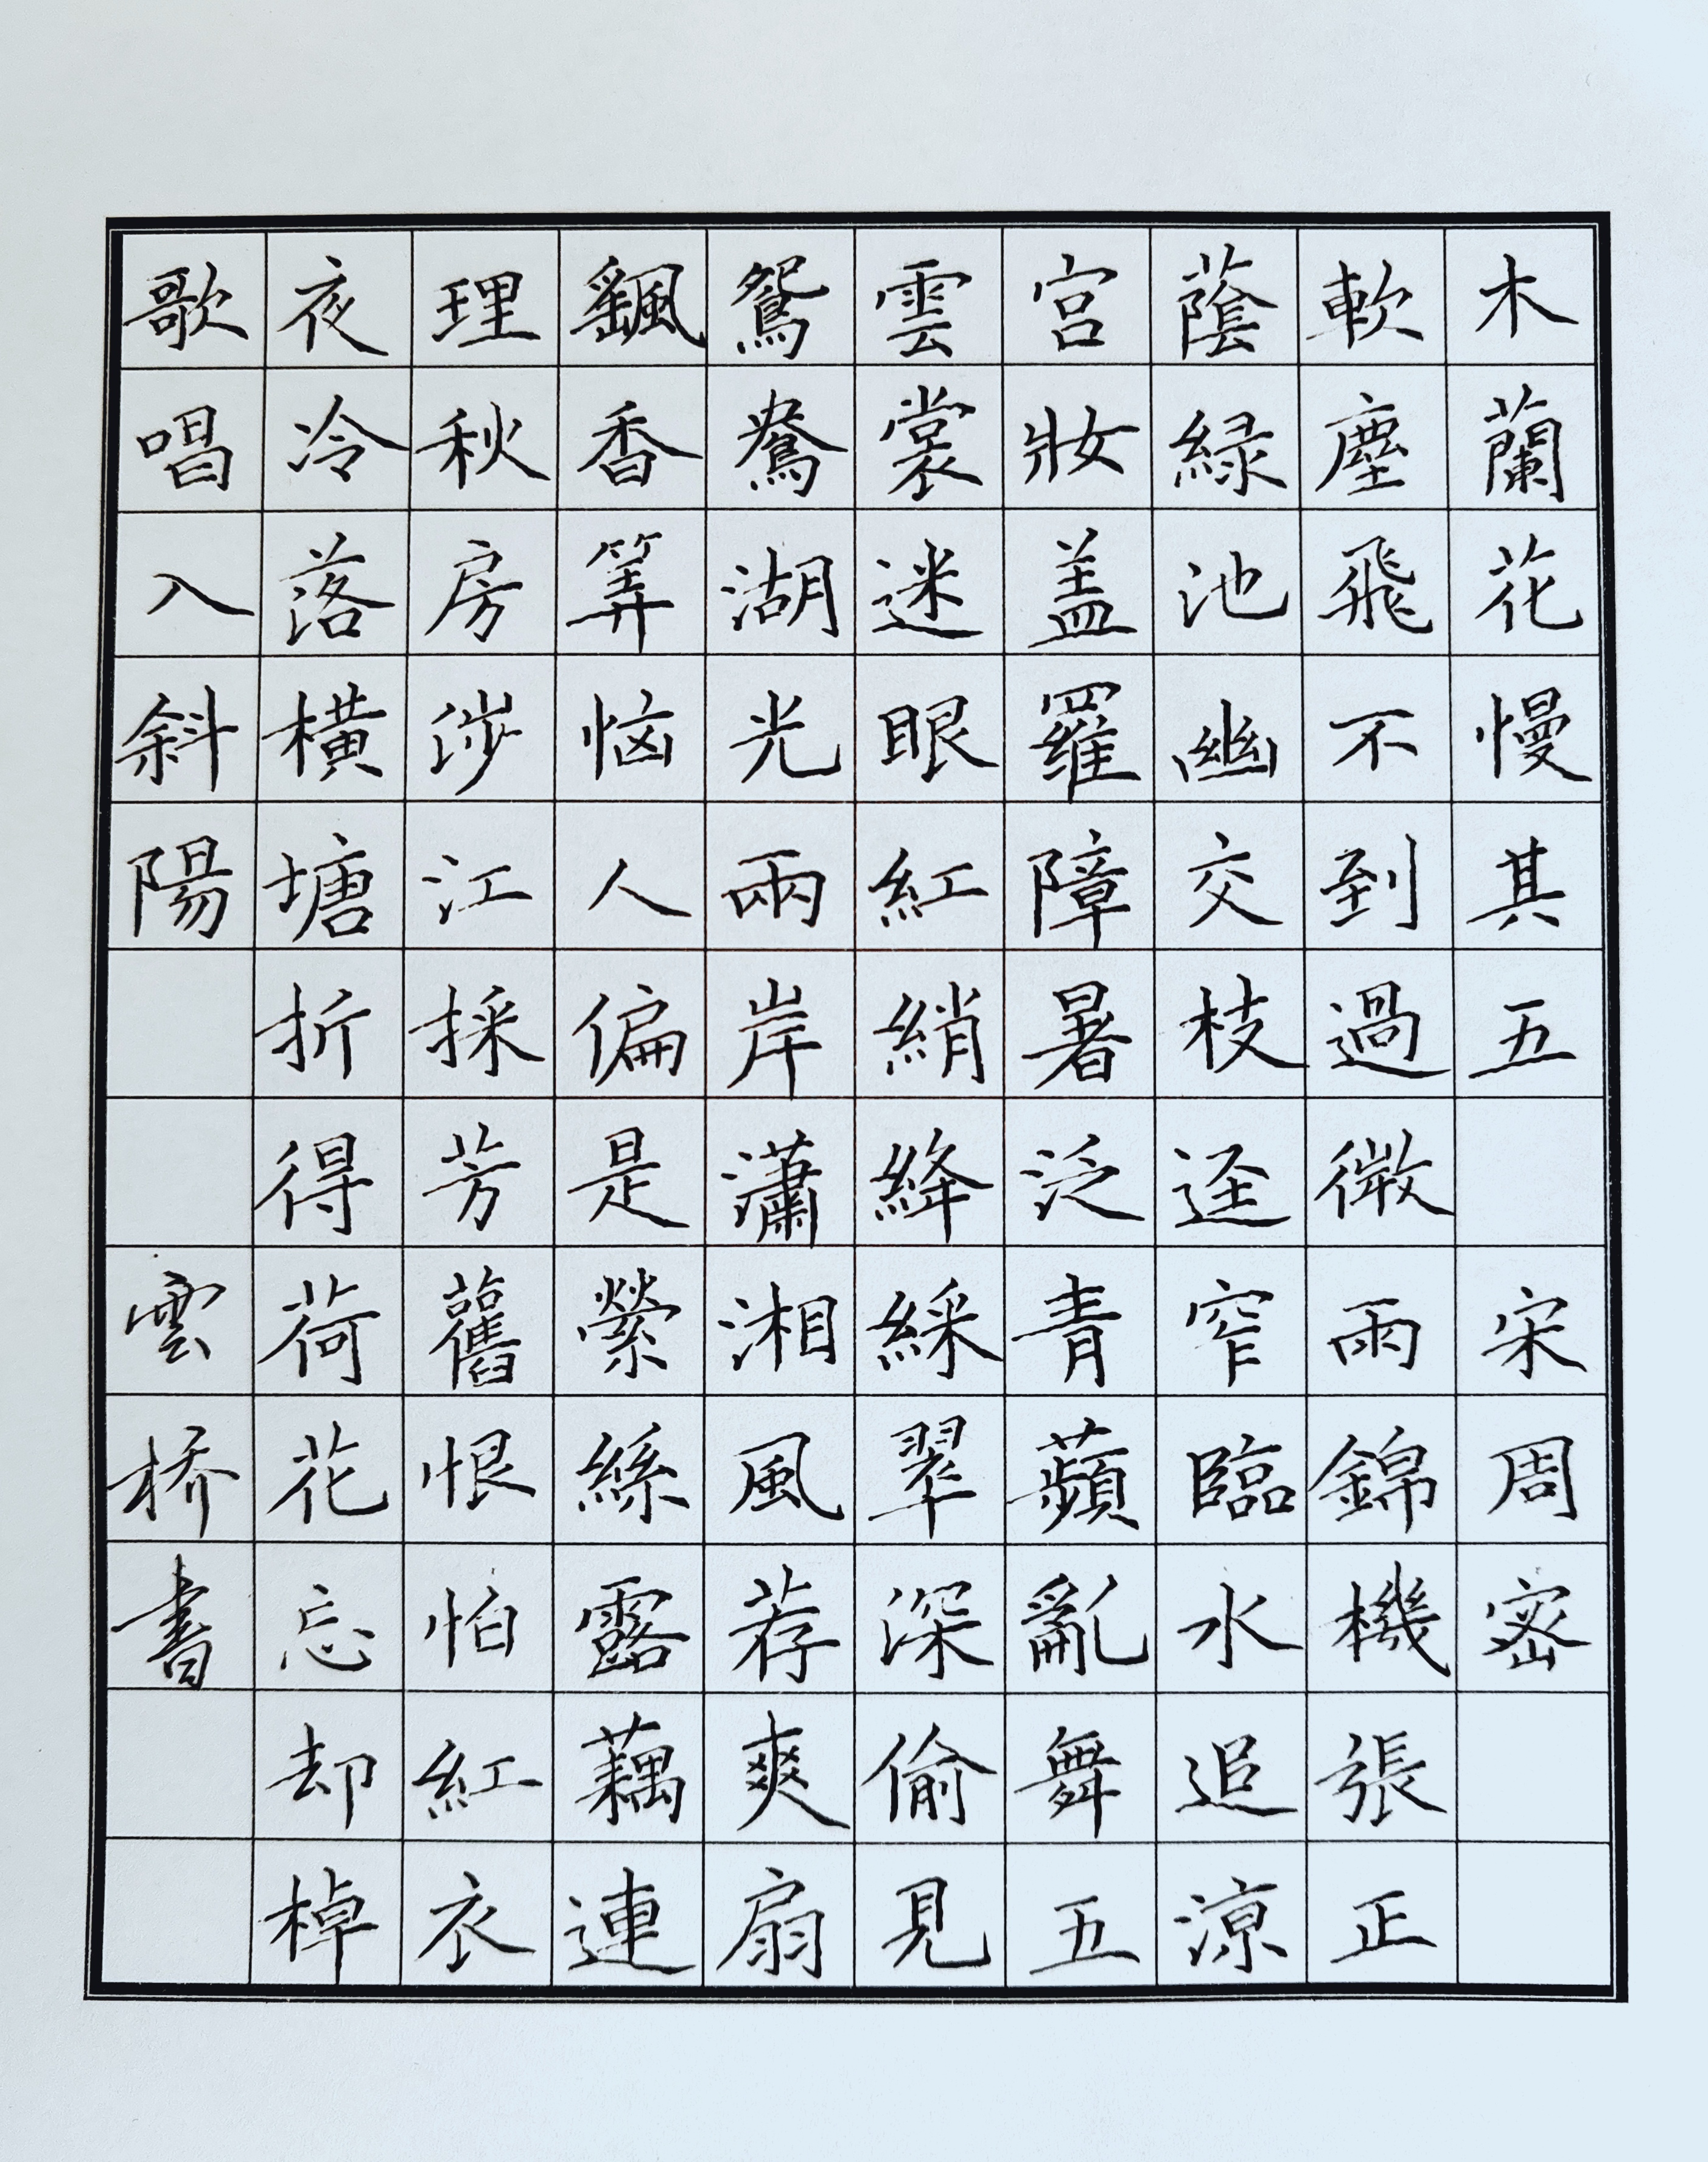 木蘭花慢其五 宋周密
軟塵飛不到過微雨錦機張正
蔭緑池幽交枝迳窄臨水追涼
宮妝蓋羅障暑泛青蘋亂舞五
雲裳迷眼紅綃絳綵翠深偷見
鴛鴦湖光兩岸瀟湘風荐爽扇
颻香筭惱人偏是縈絲露藕連
理秋房涉江採芳舊恨怕紅衣
夜冷落橫塘折得荷花忘却棹
歌唱入斜陽 雲桥書